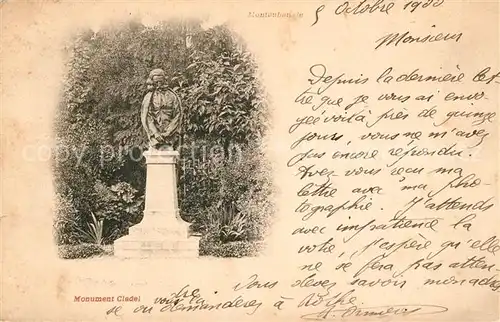 Montauban
5 Octobre 1900
Monsieur
Depuis la dernière let
tre que je vous ai envo
yée voilà près de quinze
jours, vous ne m'avez
pas encore répondu.
Avez vous reçu ma
lettre avec ma pho
tographie. J'attends
avec impatience la
vôtre, j'espère qu'elle
ne se fera pas atten
dre. Vous devez savoir mon adres
se ou vous la demanderez à
Monument Cladel